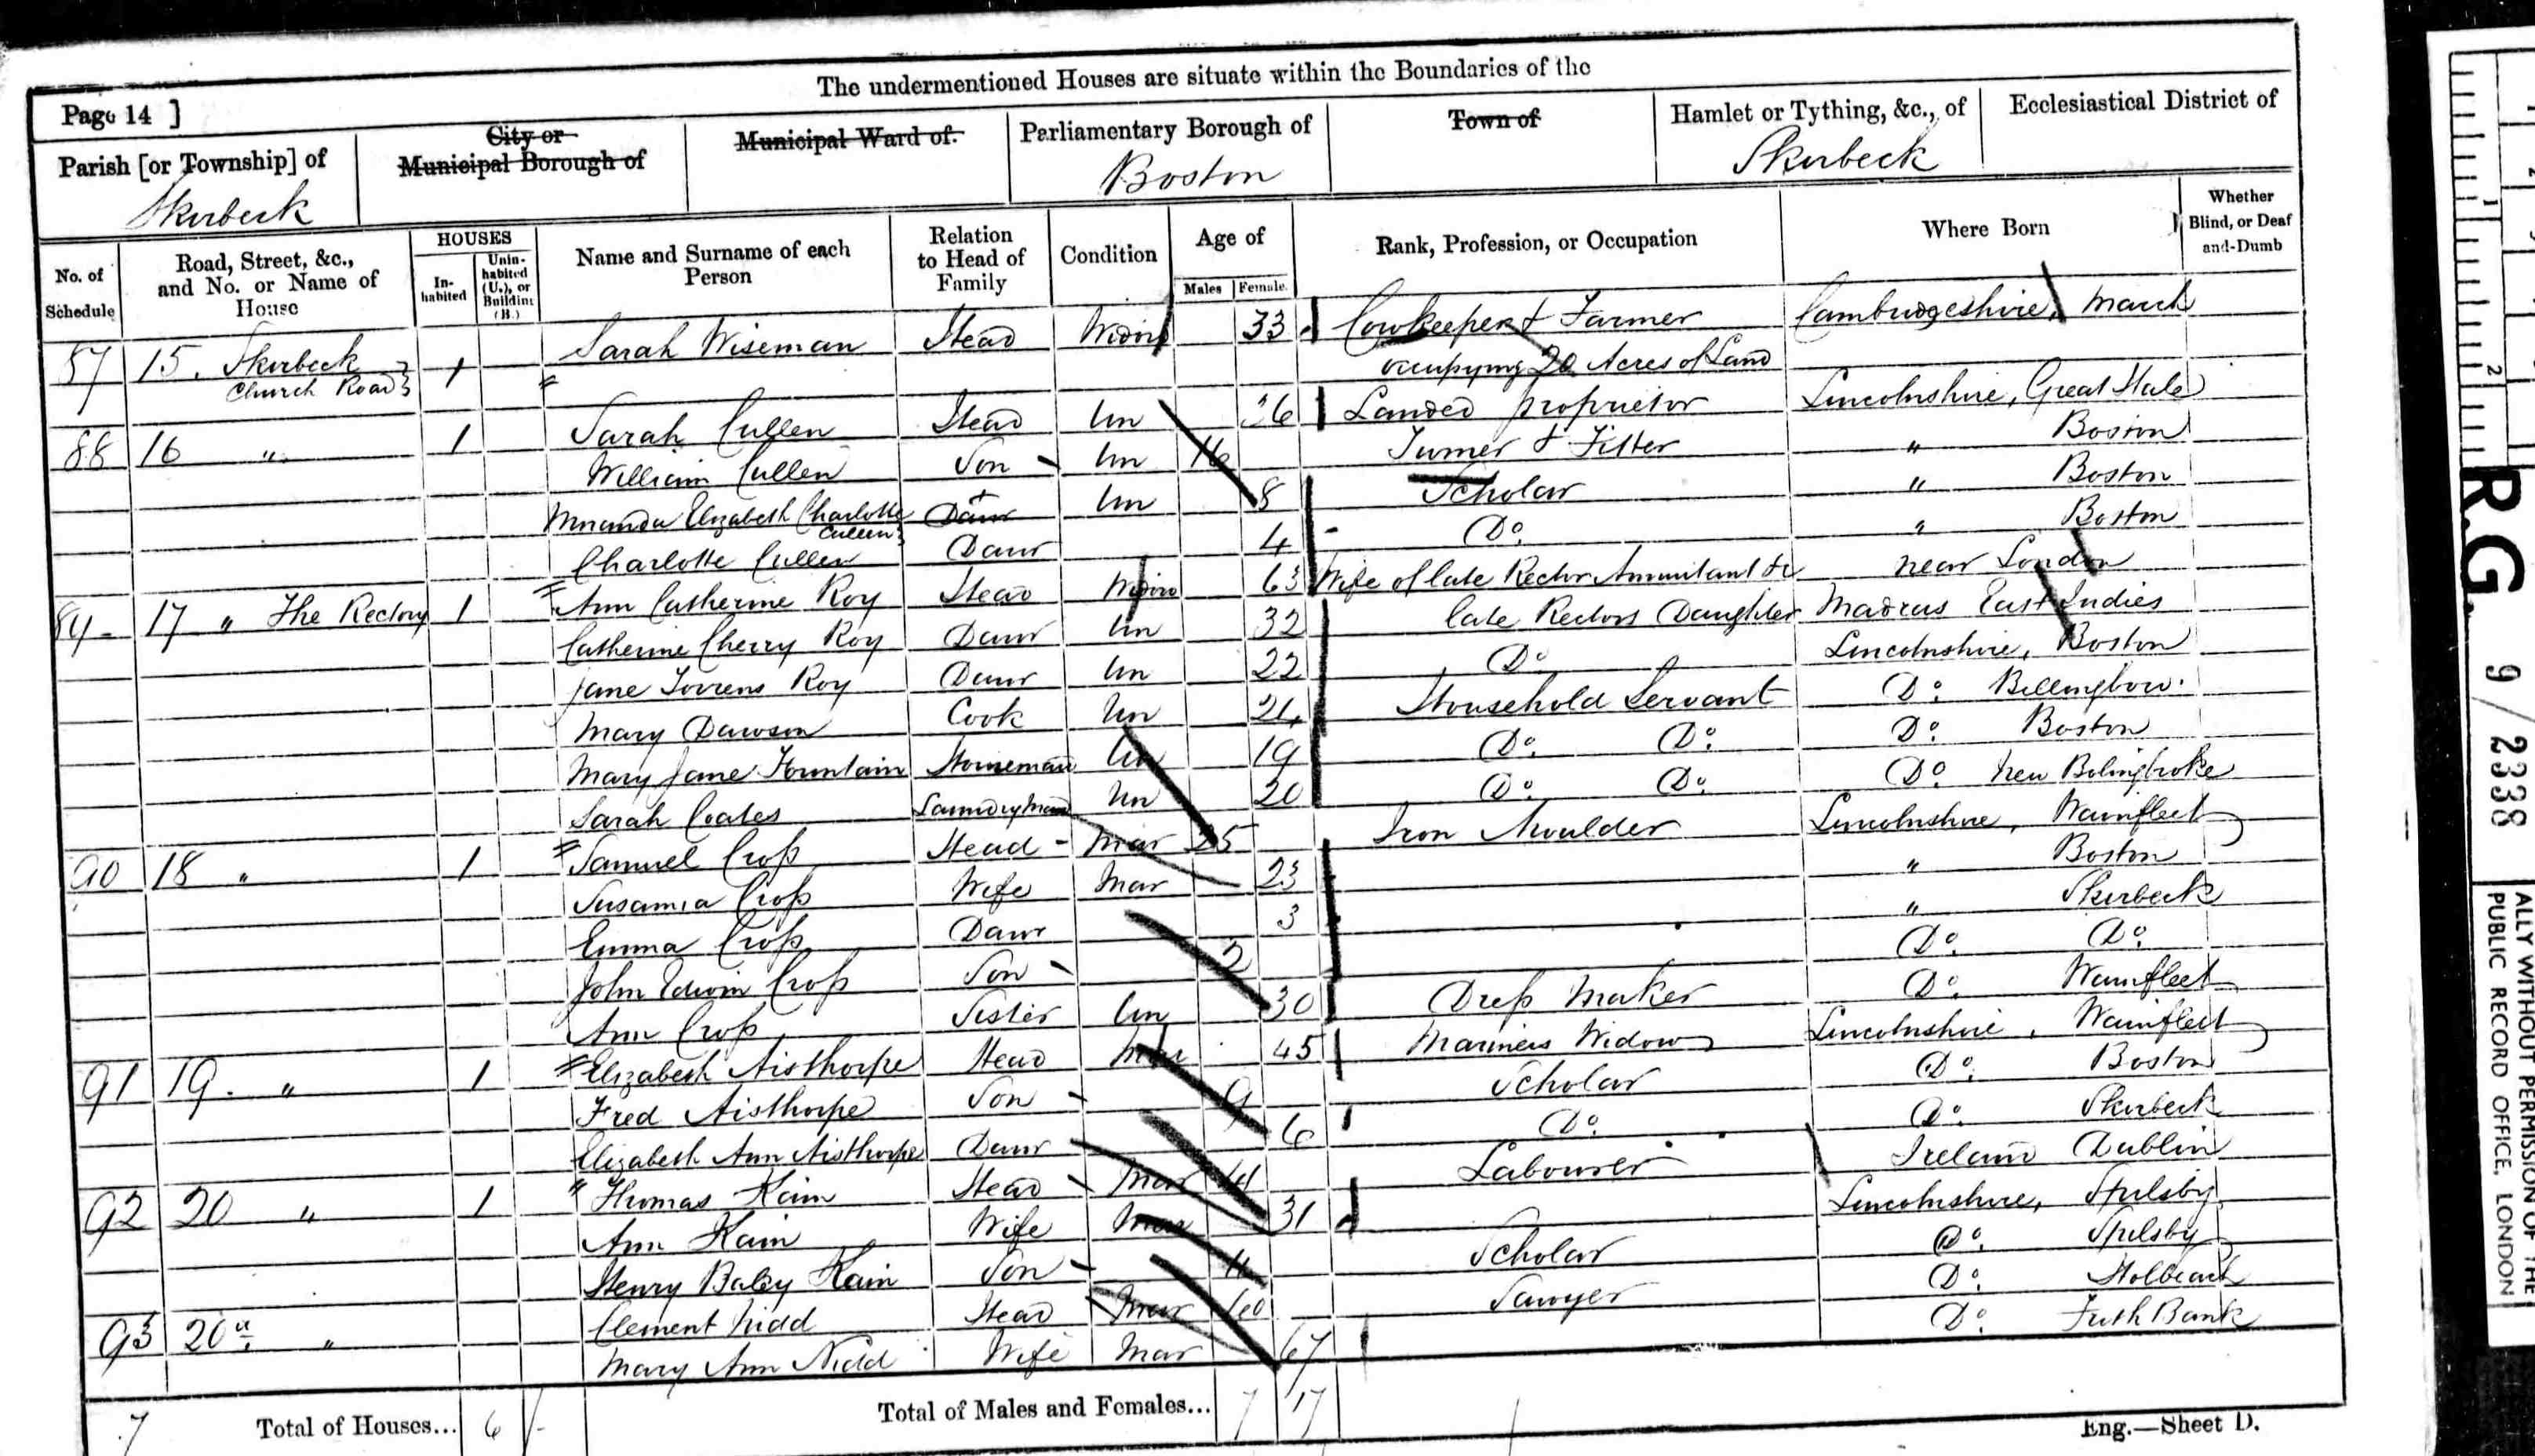 The undermentioned Houses are situate within the Boundaries of the
Page 14 ]
Parish [or Township] of
Skirbeck
City or
Municipal Borough of
Municipal Ward of
Parliamentary Borough of
Boston
Town of
Hamlet or Tything, &c., of
Skirbeck
Ecclesiastical District of
No. of Schedule
Road, Street, &c., and No. or Name of House
HOUSES
In-habited
Unin-habited (U.), or Building (B.)
Name and Surname of each Person
Relation to Head of Family
Condition
Age of
Males Female
Rank, Profession, or Occupation
Where Born
Whether Blind, or Deaf and-Dumb
87 15. Skirbeck Church Road 1 Sarah Wiseman Head Widw 33 Cowkeeper & Farmer Cambridgeshire, March
occupying 20 Acres of Land
88 16 " 1 Sarah Cullen Head Un Landed proprietor Lincolnshire, Great Hale
William Cullen Son Un 16 Turner & Fitter " Boston
Elizabeth Charlotte Cullen Daur Un 8 Scholar " Boston
Charlotte Cullen Daur 4 Do " Boston
17 " The Rectory 1 Ann Catherine Roy Head Widw 63 Wife of late Rector Annuitant &c near London
Catherine Cherry Roy Daur Un 32 late Rectors Daughter Madras East Indies
Jane Torrens Roy Daur Un 22 Do Lincolnshire, Boston
Mary Dawson Cook Un Household Servant Do Billingboro
Mary Jane Fountain Housemaid Un 19 Do Do Do Boston
Sarah Coates Laundrymaid Un 20 Do Do Do New Bolingbroke
90 18 " 1 Samuel Cross Head Mar 25 Iron Moulder Lincolnshire, Wainfleet
Susanna Cross Wife Mar 23 " Boston
Emma Cross Daur 3 " Skirbeck
John Edwin Cross Son 2 Do Do
Ann Cross Sister Un 30 Dress Maker Do Wainfleet
91 19. " 1 Elizabeth Aisthorpe Head 45 Mariners Widow Lincolnshire, Wainfleet
Fred Aisthorpe Son 9 Scholar Do Boston
Elizabeth Ann Aisthorpe Daur 6 Do Do Skirbeck
92 20 " 1 Thomas Kain Head Mar Labourer Ireland Dublin
Ann Kain Wife Mar 31 Lincolnshire, Spilsby
Henry Kain Son 11 Scholar Do Spilsby
93 20a " Clement Nidd Head Mar Sawyer Do Holbeach
Mary Ann Nidd Wife Mar 67 Do Frith Bank
7 Total of Houses... 6 Total of Males and Females... 7 17
Eng.—Sheet D.
R.G. 9/2338
ALLY WITHOUT PERMISSION OF THE
PUBLIC RECORD OFFICE, LONDON